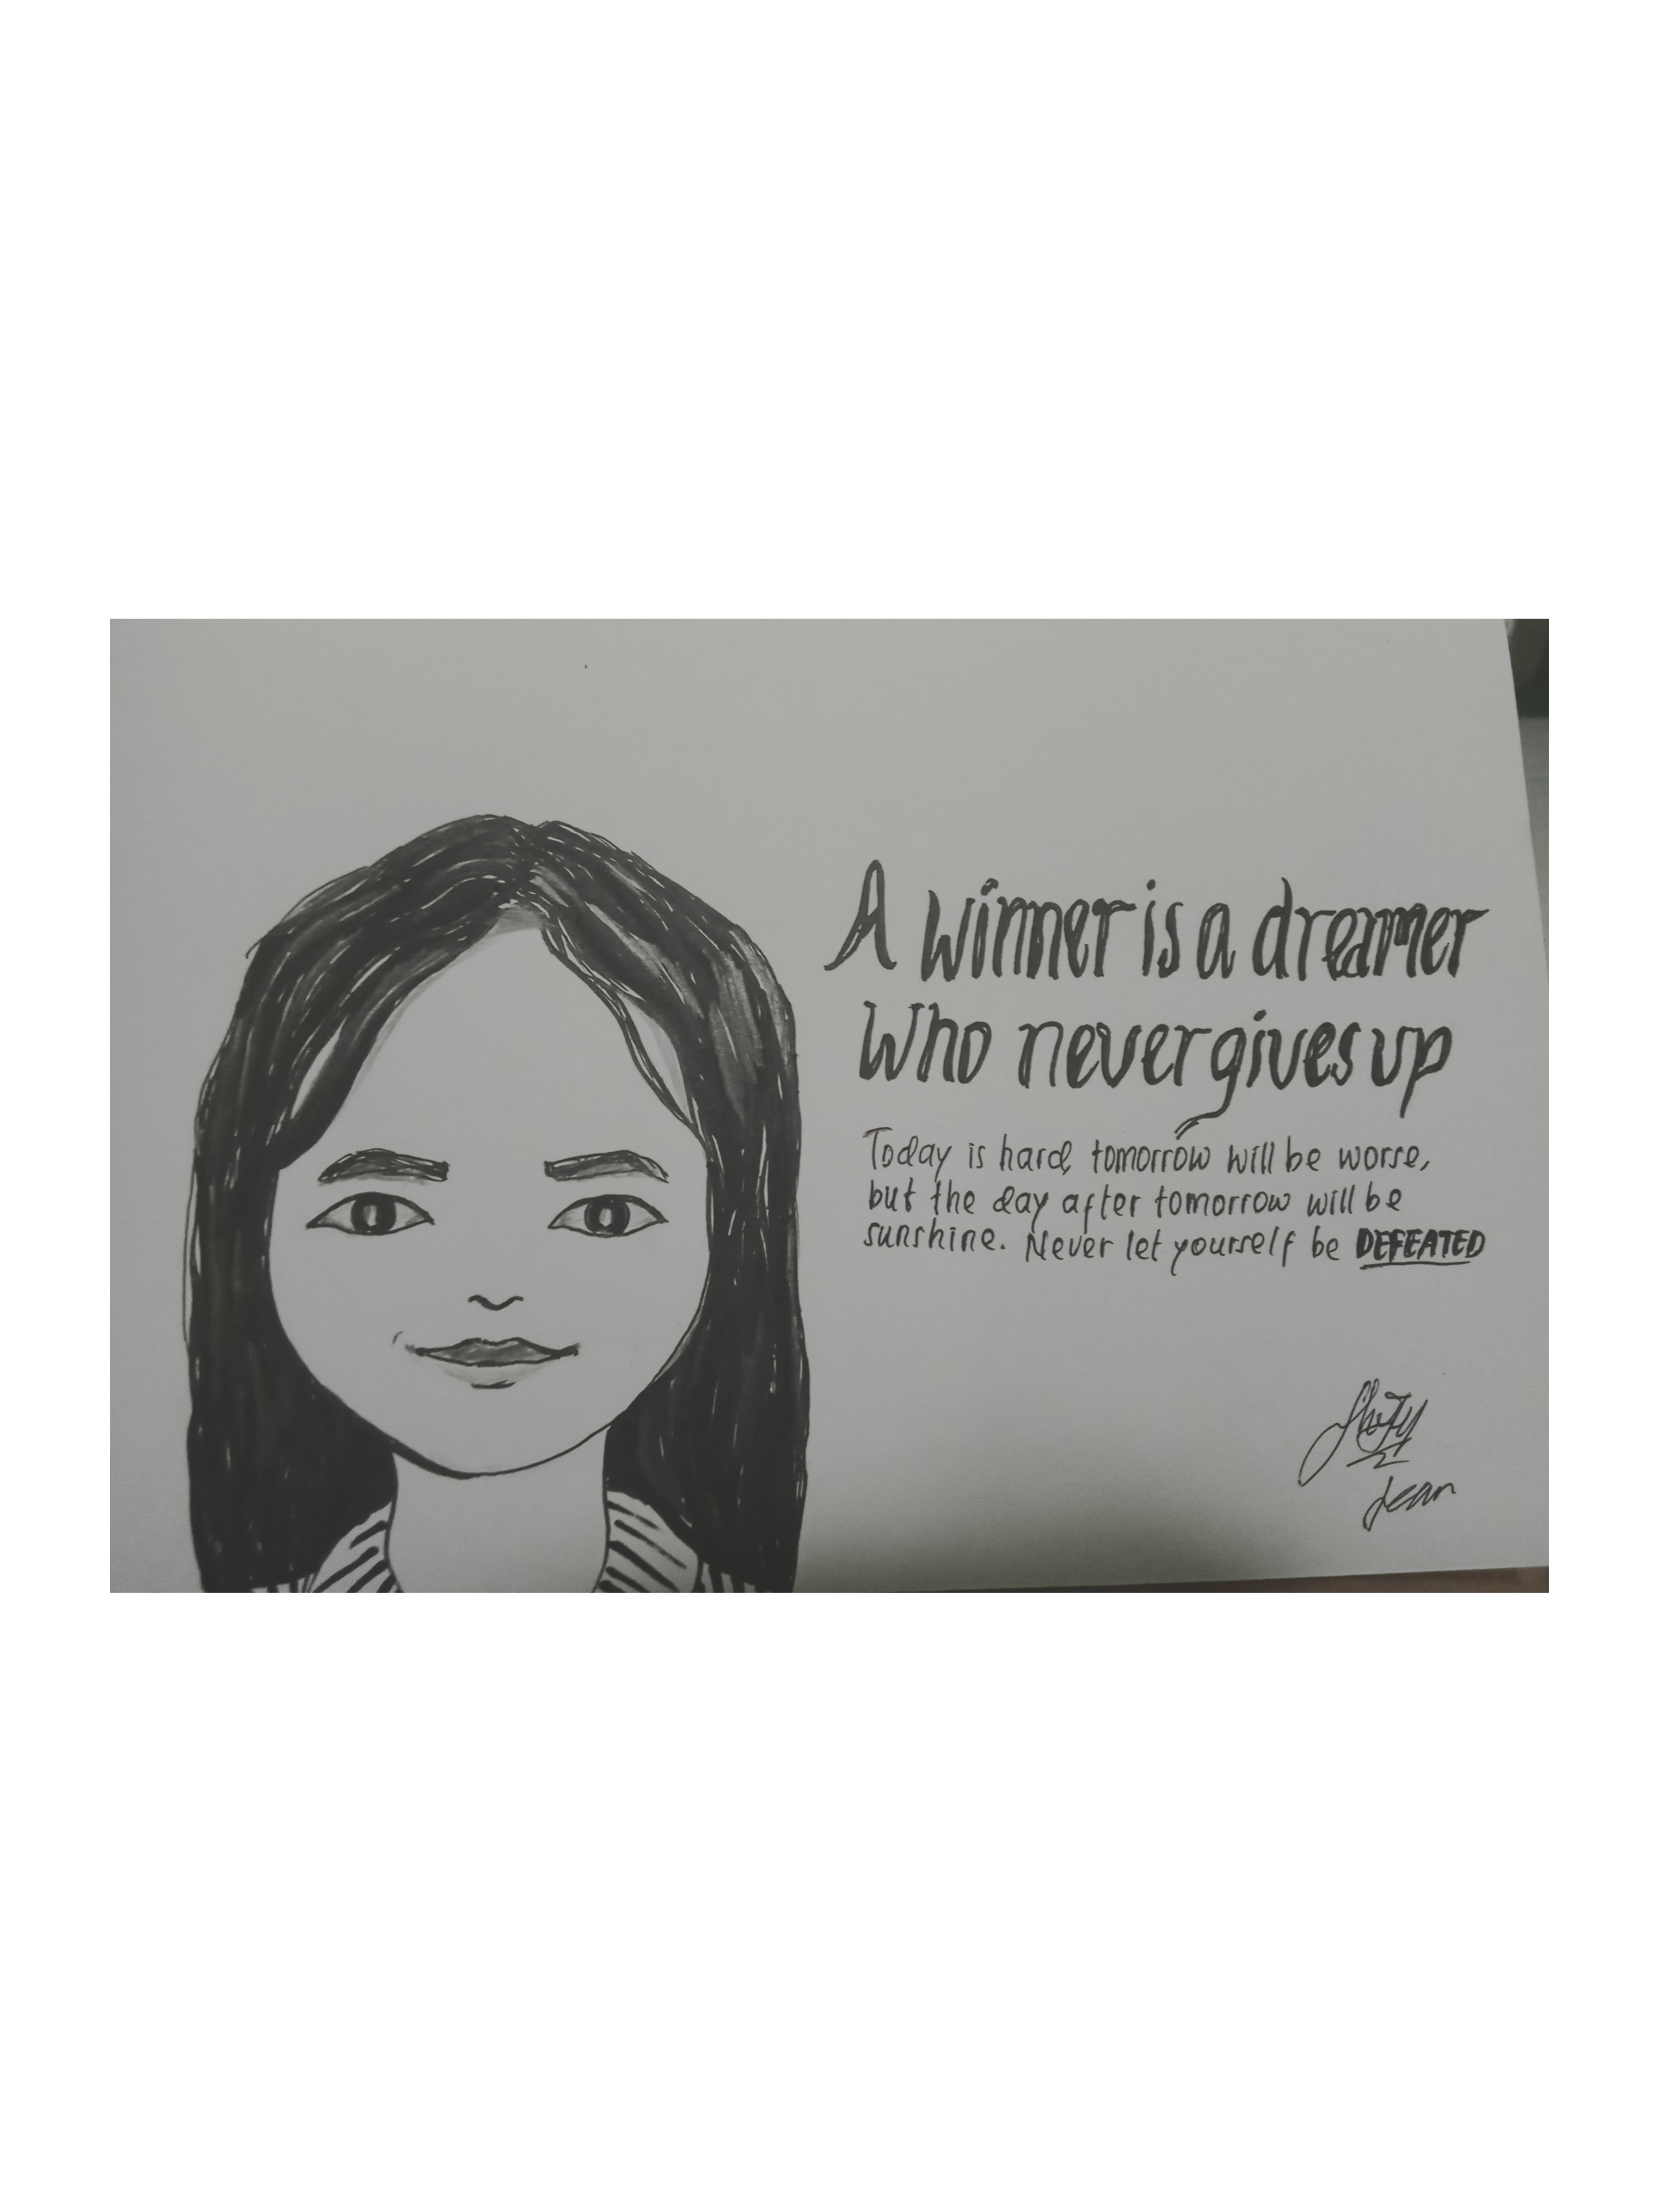 A winner is a dreamer
Who never gives up
Today is hard, tomorrow will be worse,
but the day after tomorrow will be
sunshine. Never let yourself be DEFEATED
Jean